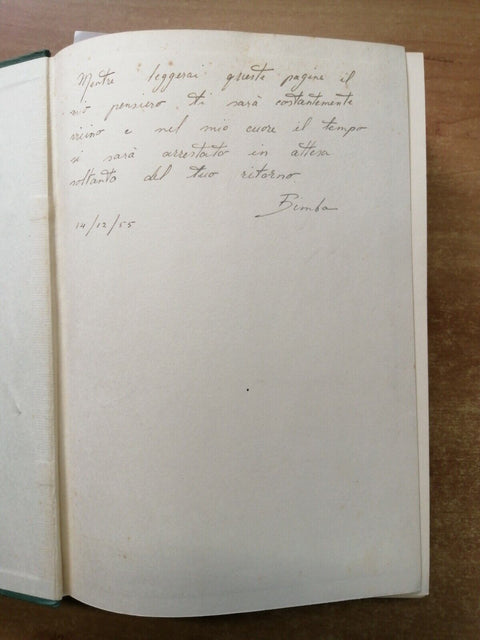 Mentre leggerai queste pagine il
mio pensiero ti sarà costantemente
vicino e nel mio cuore il tempo
si sarà arrestato in attesa
soltanto del tuo ritorno
Bimba
14/12/55